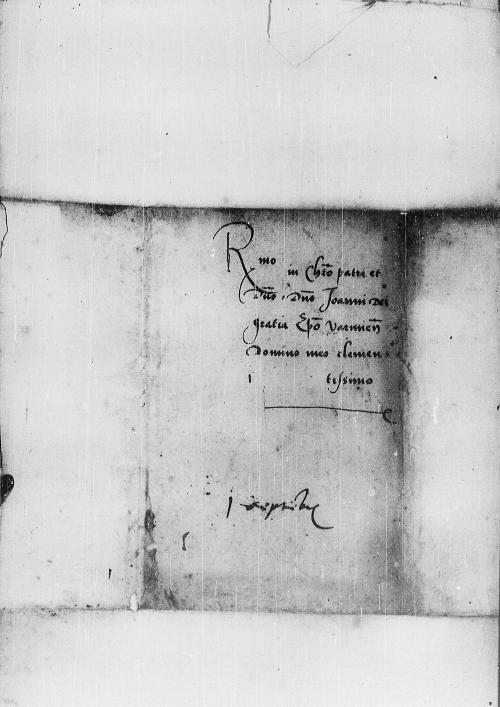 Rmo
in Chro patri et
Dño Dño Joanni dei
gratia Epõ Varmieñ
Domino meo clemen
tissimo